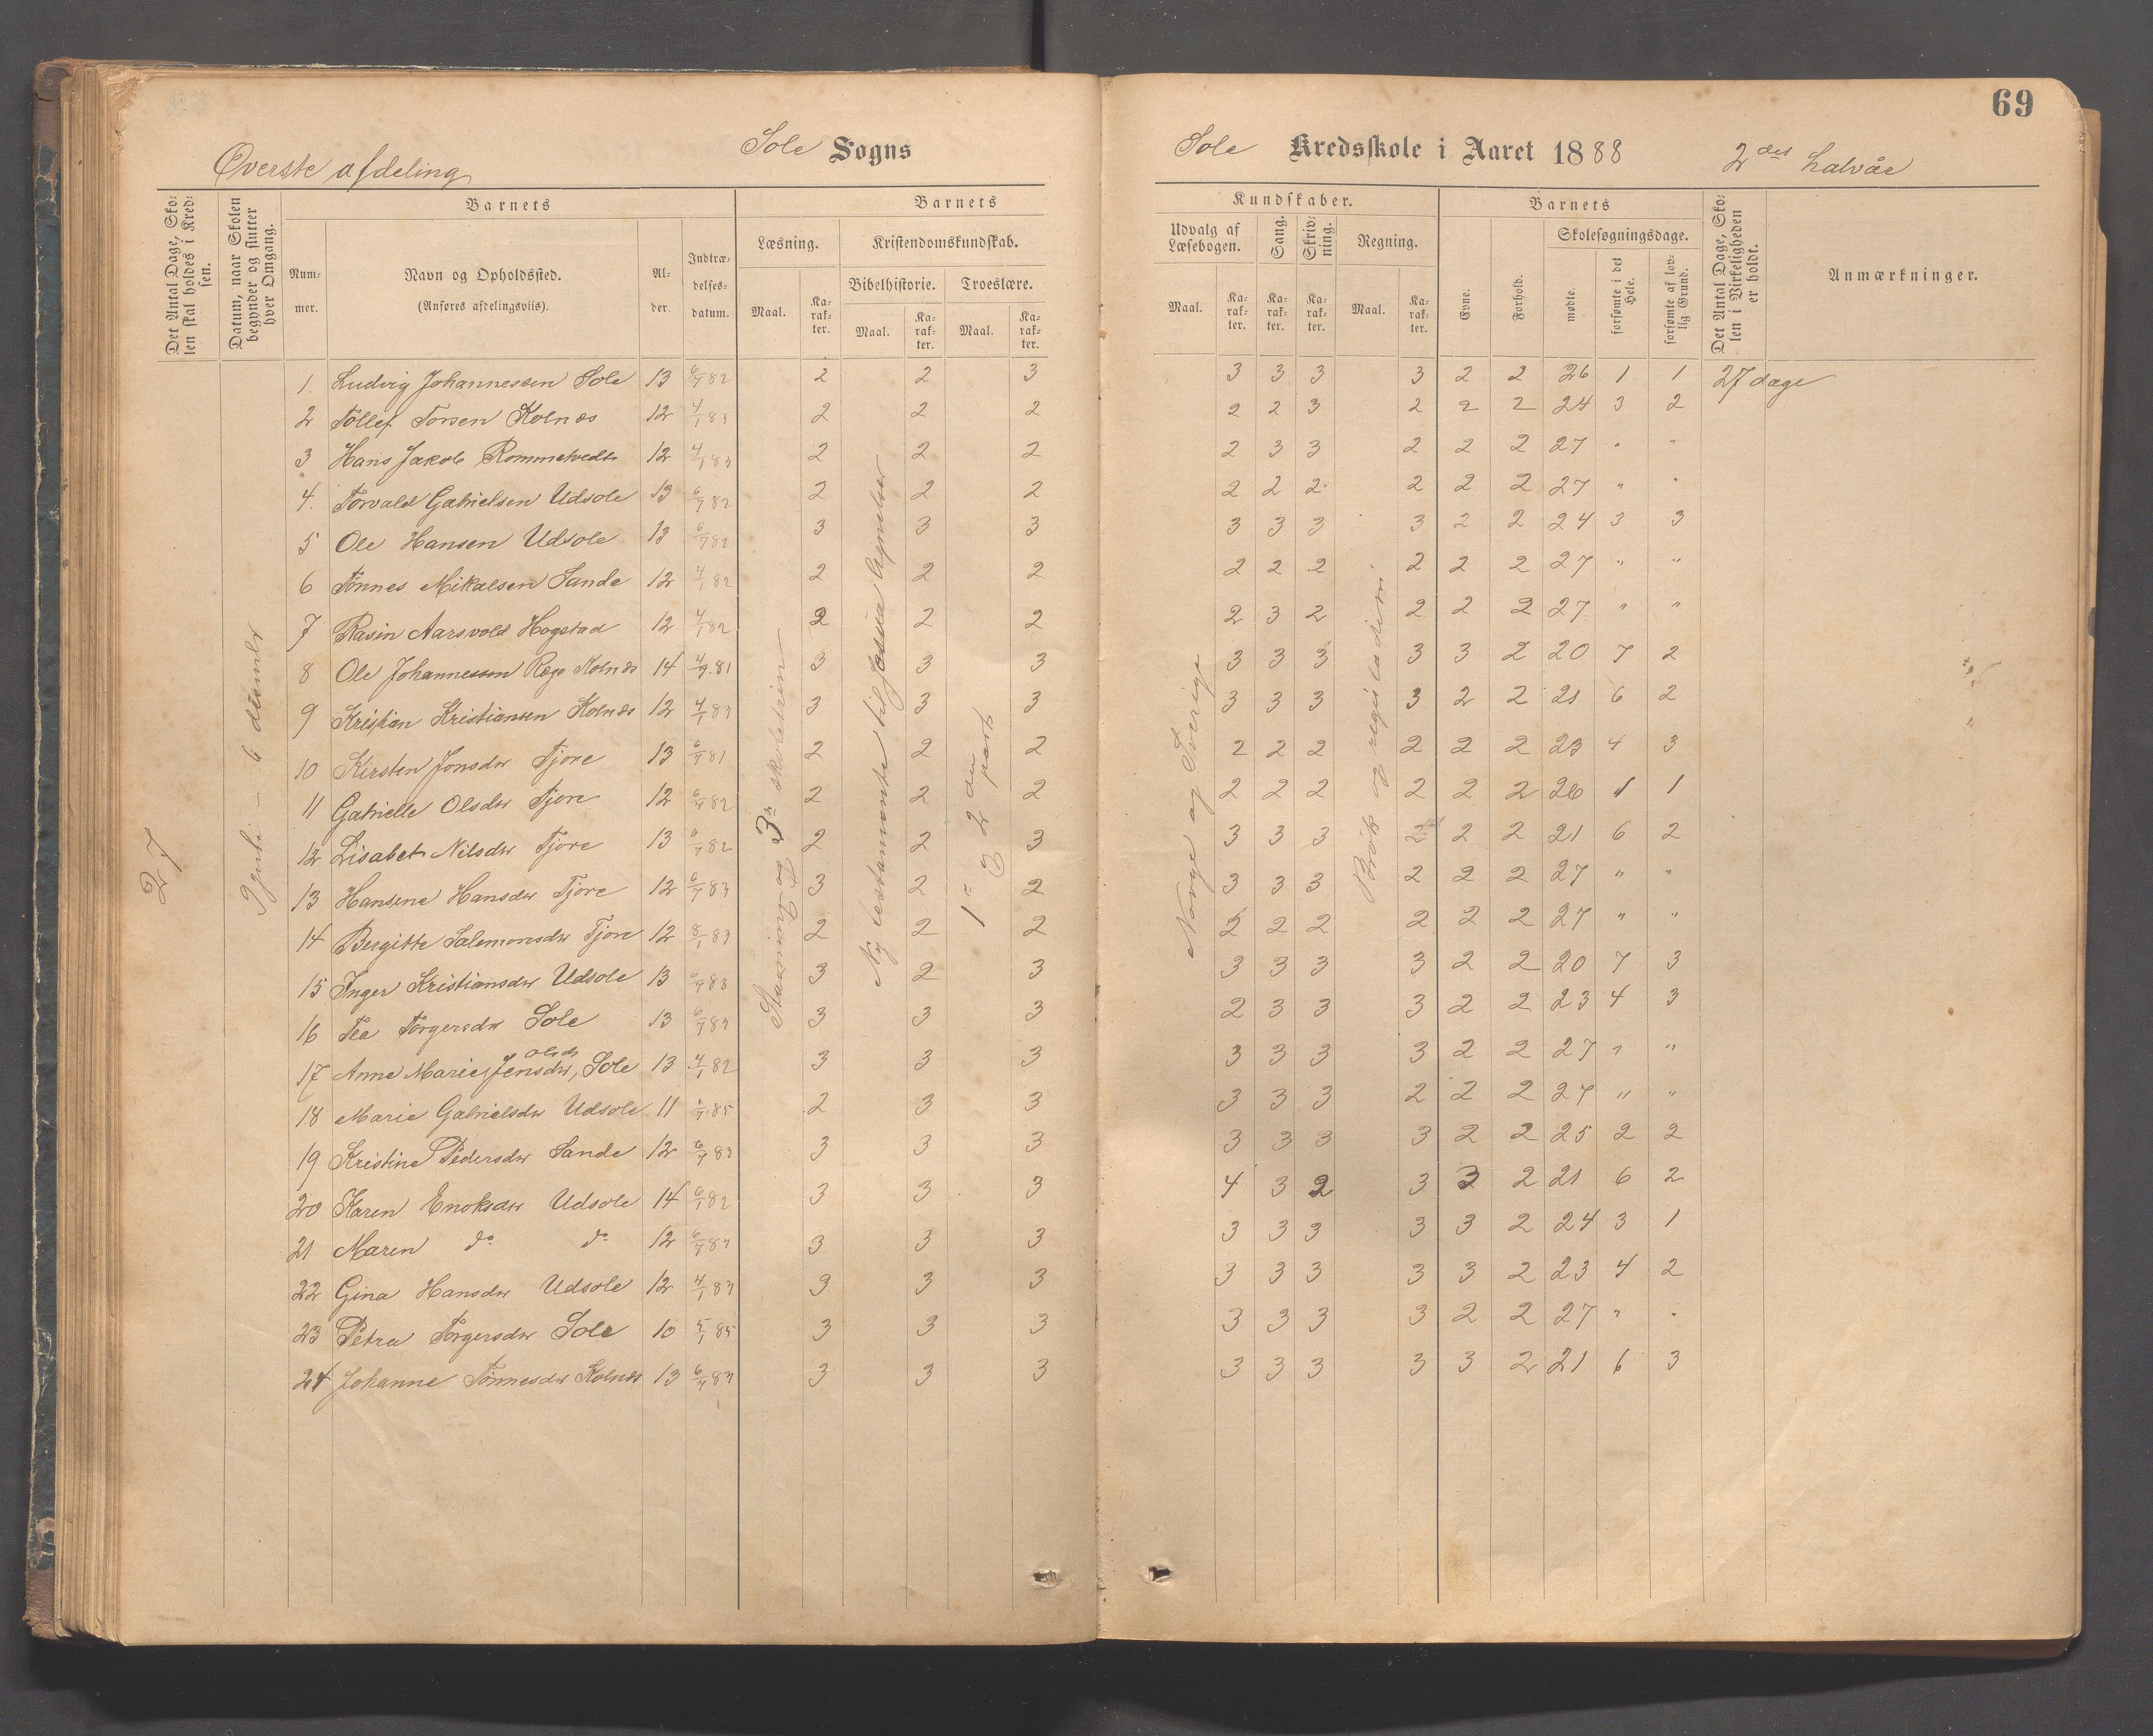 69
Sole Sogns
Sole Kredsskole i Aaret 1888
2det halvår
Øverste afdeling
Det Antal Dage, Skolen skal holdes i Kredsen.
Datum, naar Skolen begynder og slutter hver Omgang.
Barnets
Nummer.
Navn og Opholdssted.
(Anføres afdelingsviis).
Alder.
Indtrædelsesdatum.
Barnets
Læsning.
Kristendomskundskab.
Bibelhistorie.
Troeslære.
Maal. Karakter. Maal. Karakter. Maal. Karakter.
Kundskaber.
Udvalg af Læsebogen.
Sang.
Skrivning.
Regning.
Maal. Karakter. Karakter. Karakter. Maal. Karakter.
Barnets
Evne.
Forhold.
Skolesøgningsdage.
mødte.
forsømte i det Hele.
forsømte af lovlig Grund.
Det Antal Dage, Skolen i Virkeligheden er holdt.
Anmærkninger.
27
3die skoletrin
Ny testamente til
1ste og 2den part
Norge og Sverige
Brøk og
27 dage
1. Ludvig Johannessen Sole 13 6/7 82 2 2 3 3 3 3 3 2 2 26 1 1
2 Tollef Torsen Kolnes 12 4/1 83 2 2 2 2 2 3 2 2 2 24 3 2
3 Hans Jakob Rommetvedt 12 4/1 83 2 2 2 2 3 3 2 2 2 27 " "
4. Torvald Gabrielsen Udsole 13 6/7 82 2 2 2 2 2 2 2 2 2 27 " "
5 Ole Hansen Udsole 13 6/7 82 3 3 3 3 3 3 3 2 2 24 3 3
6 Tønnes Mikalsen Sande 12 4/1 82 2 2 2 2 2 2 2 2 2 27 " "
7 Rasin Aarsvold Hogstad 12 4/1 82 2 2 2 2 3 2 2 2 2 27 " "
8 Ole Johannessen Rege Kolnes 14 4/7 81 3 3 3 3 3 3 3 3 2 20 7 2
9 Kristian Kristiansen Kolnes 12 4/1 83 3 3 3 3 3 3 3 2 2 21 6 2
10 Kirsten Jonsdtr Tjore 13 6/7 81 2 2 2 2 2 2 2 2 2 23 4 3
11 Gabrielle Olsdtr Tjore 12 6/7 82 2 2 2 2 2 2 2 2 2 26 1 1
12 Lisabet Nilsdtr Tjore 13 6/7 82 2 2 3 3 3 3 2 2 2 21 6 2
13 Hansene Hansdtr Tjore 12 6/7 83 3 2 2 3 3 3 2 2 2 27 " "
14 Bergitte Salemonsdtr Tjore 12 8/1 83 2 2 2 2 2 2 2 2 2 27 " "
15 Inger Kristiansdtr Udsole 13 6/7 83 3 2 3 3 3 3 3 2 2 20 7 3
16 Tea Torgersdtr Sole 13 6/7 83 3 3 3 2 3 3 3 2 2 23 4 3
Olsdtr
17 Anne Marie Jensdtr, Sole 13 4/1 82 3 3 3 3 3 3 3 2 2 27 " "
18 Marie Gabrielsdtr Udsole 11 1/7 85 2 3 3 3 3 3 2 2 2 27 " "
19 Kristine Pedersdtr Sande 12 6/7 83 3 3 3 3 3 3 3 2 2 25 2 2
20 Karen Enoksdtr Udsole 14 6/1 82 3 3 3 4 3 2 3 3 2 21 6 2
21 Maren do do 12 6/7 83 3 3 3 3 3 3 3 3 2 24 3 1
22 Gina Hansdtr Udsole 12 4/1 83 3 3 3 3 3 3 3 3 2 23 4 2
23 Petra Torgersdtr Sole 10 5/1 85 3 3 3 3 3 3 3 2 2 27 " "
24 Johanne Tønnesdtr Kolnes 13 6/7 83 3 3 3 3 3 3 3 3 2 21 6 3